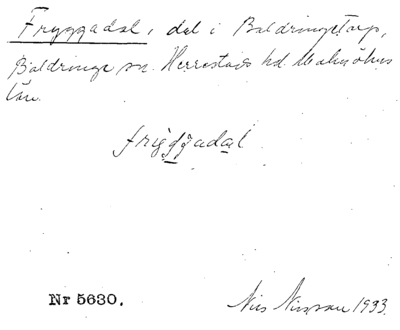 Fryggadal, del i Baldringetorp,
Baldringe sn. Herrestads hd. Malmöhus
län.
Nr 5630. Nils Nilsson 1933.